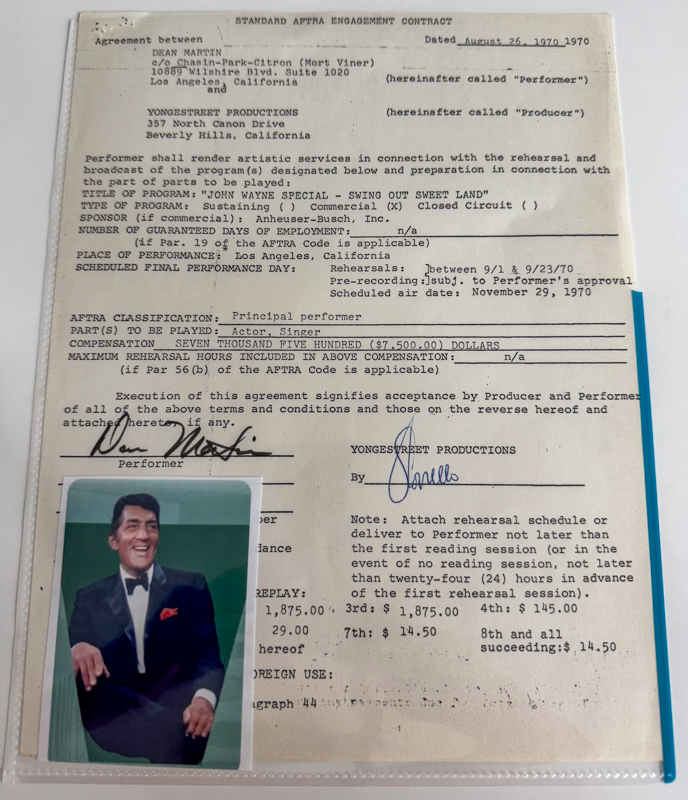 STANDARD AFTRA ENGAGEMENT CONTRACT
Agreement between Dated August 26, 1970 1970
DEAN MARTIN
c/o Chasin-Park-Citron (Mort Viner)
10889 Wilshire Blvd. Suite 1020
Los Angeles, California (hereinafter called "Performer")
and
YONGESTREET PRODUCTIONS (hereinafter called "Producer")
357 North Canon Drive
Beverly Hills, California
Performer shall render artistic services in connection with the rehearsal and
broadcast of the program(s) designated below and preparation in connection with
the part of parts to be played:
TITLE OF PROGRAM: "JOHN WAYNE SPECIAL - SWING OUT SWEET LAND"
TYPE OF PROGRAM: Sustaining ( ) Commercial (X) Closed Circuit ( )
SPONSOR (if commercial): Anheuser-Busch, Inc.
NUMBER OF GUARANTEED DAYS OF EMPLOYMENT: n/a
(if Par. 19 of the AFTRA Code is applicable)
PLACE OF PERFORMANCE: Los Angeles, California
SCHEDULED FINAL PERFORMANCE DAY: Rehearsals: ]between 9/1 & 9/23/70
Pre-recording:]subj. to Performer's approval
Scheduled air date: November 29, 1970
AFTRA CLASSIFICATION: Principal performer
PART(S) TO BE PLAYED: Actor, Singer
COMPENSATION SEVEN THOUSAND FIVE HUNDRED ($7,500.00) DOLLARS
MAXIMUM REHEARSAL HOURS INCLUDED IN ABOVE COMPENSATION: n/a
(if Par 56(b) of the AFTRA Code is applicable)
Execution of this agreement signifies acceptance by Producer and Performer
of all of the above terms and conditions and those on the reverse hereof and
attached hereto if any.
Dean Martin
Performer
YONGESTREET PRODUCTIONS
By
Note: Attach rehearsal schedule or
deliver to Performer not later than
the first reading session (or in the
event of no reading session, not later
than twenty-four (24) hours in advance
of the first rehearsal session).
ber
dance
REPLAY:
1,875.00 3rd: $ 1,875.00 4th: $ 145.00
29.00 7th: $ 14.50 8th and all
hereof succeeding:$ 14.50
OREIGN USE:
agraph 44